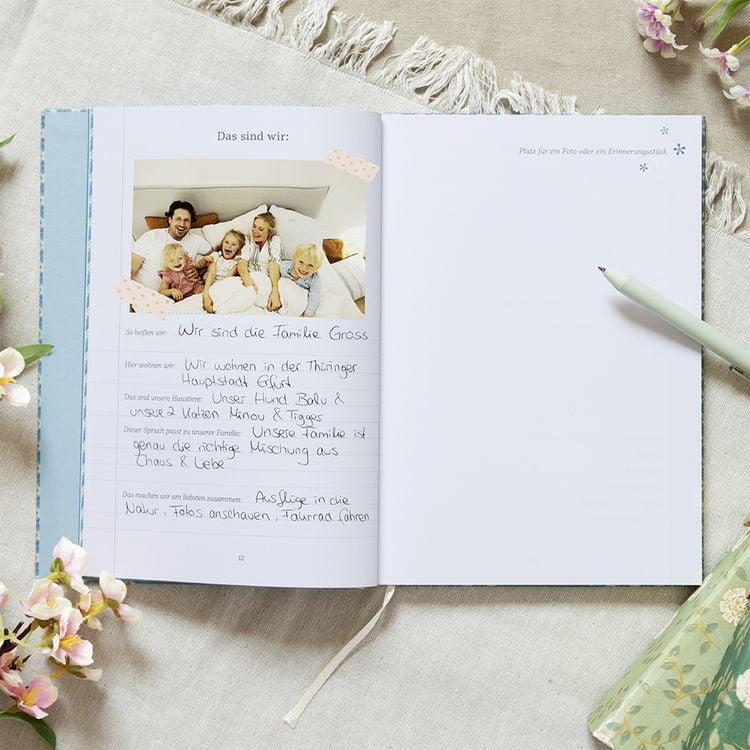 Das sind wir:
So heißen wir: Wir sind die Familie Gross
Hier wohnen wir: Wir wohnen in der Thüringer
Hauptstadt Erfurt.
Das sind unsere Haustiere: Unser Hund Balu &
unsere 2 Katzen Minou & Tigger
Dieser Spruch passt zu unserer Familie: Unsere Familie ist
genau die richtige Mischung aus
Chaos & Liebe.
Das machen wir am liebsten zusammen: Ausflüge in die
Natur, Fotos anschauen, Fahrrad fahren
12
Platz für ein Foto oder ein Erinnerungsstück